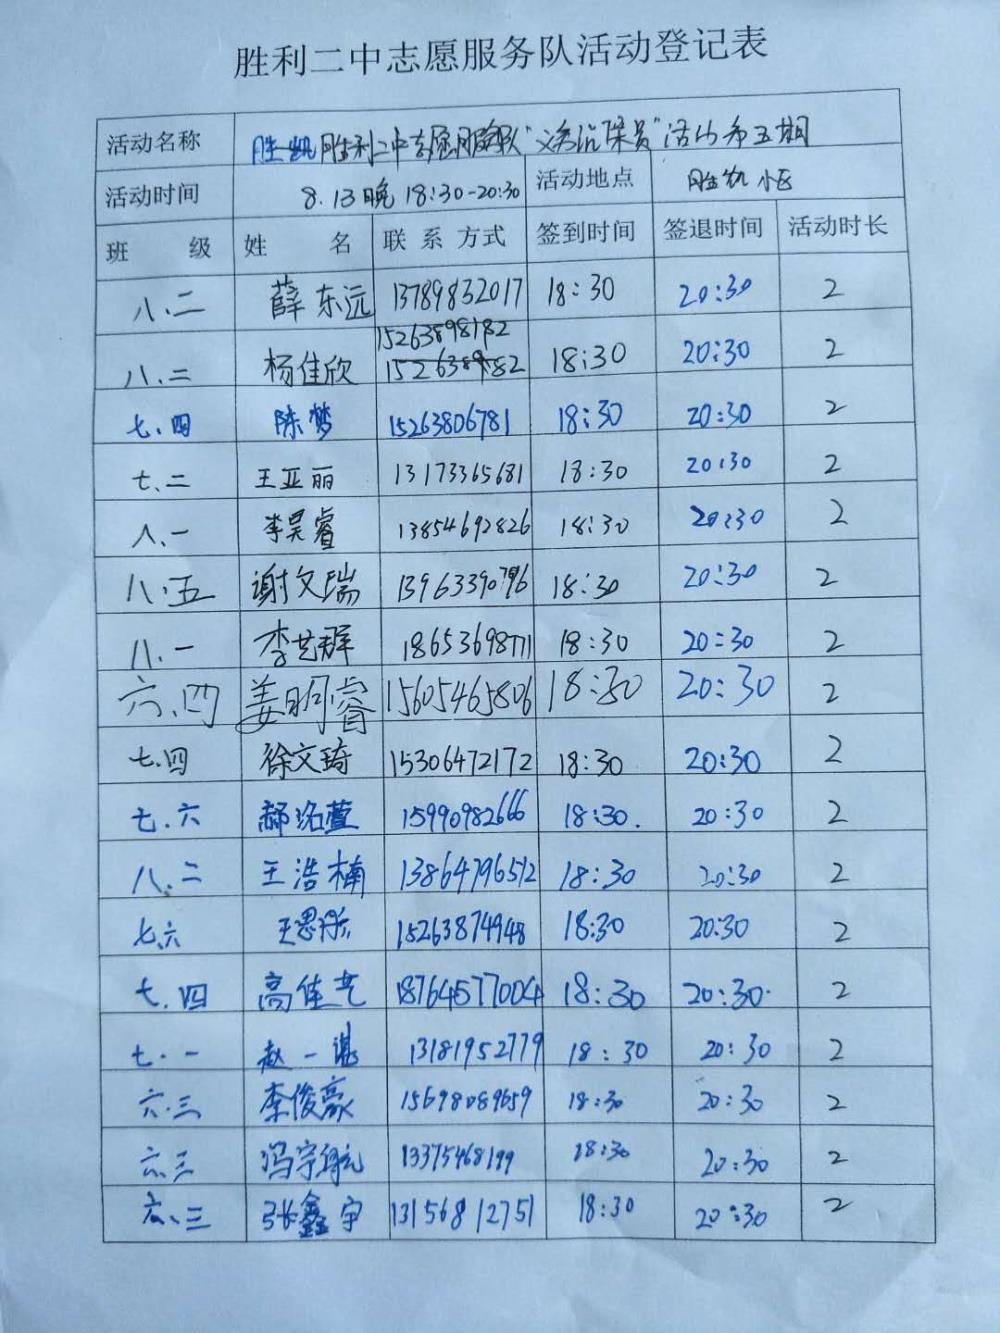 胜利二中志愿服务队活动登记表
活动名称 胜凯胜利二中志愿服务队"义务治保员"活动第五期
活动时间 8.13晚 18:30-20:30 活动地点 胜凯小区
班 级 姓 名 联系方式 签到时间 签退时间 活动时长
八.二 薛东远 13789832017 18:30 20:30 2
15263898182
八.二 杨佳欣 18:30 20:30 2
七.四 陈梦 15263806781 18:30 20:30 2
七.二 王亚丽 13173365681 18:30 20:30 2
八.一 李昊睿 13854692826 18:30 20:30 2
八.五 谢文瑞 13963390796 18:30 20:30 2
八.一 李艺群 18653698771 18:30 20:30 2
六.四 姜明睿 15605465806 18:30 20:30 2
七.四 徐文琦 15306472172 18:30 20:30 2
七.六 郝洺萱 15990982666 18:30. 20:30 2
八.二 王浩楠 13864796512 18:30 20:30 2
七.六 王思 15263874948 18:30 20:30 2
七.四 高佳艺 18764577004 18:30 20:30 2
七.一 赵一谌 13181952779 18:30 20:30 2
六.三 李俊豪 15698089659 18:30 20:30 2
六.三 冯宇航 13375468199 18:30 20:30 2
六.三 张鑫宇 13156812751 18:30 20:30 2